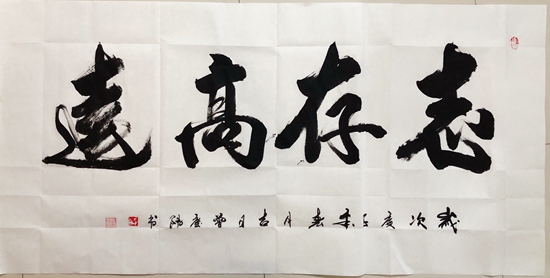 志存高遠
歲次庚子季春月吉日曾慶书